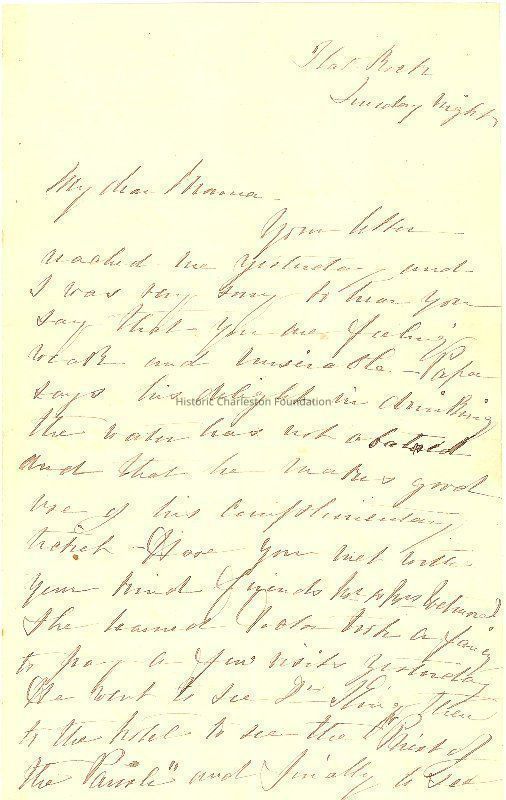 Flat Rock
Sunday Night
My dear Mama
Your letter
reached me yesterday and
I was very sorry to hear you
say that you are feeling
weak and miserable. - Papa
says his delight in drinking
Historic Charleston Foundation
the water has not abated
and that he makes good
use of his complimentary
ticket - Have you met with
your kind friends Mr & Mrs
The learned Doctor took a fancy
to pay a few visits yesterday
He went to see Dr King then
to the Hotel to see the "Priest of
the Parish" and finally to see